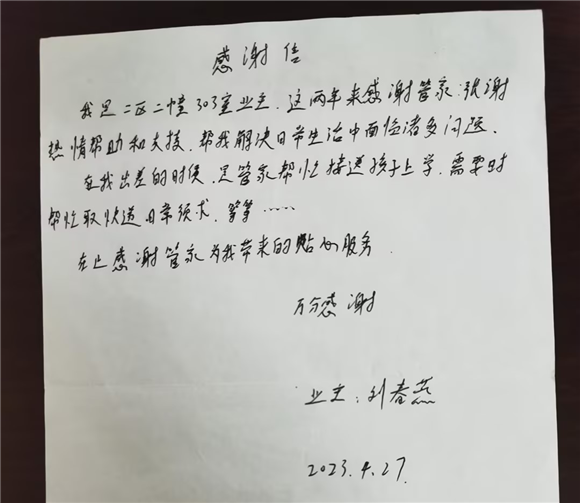 感谢信
我是二区二幢303室业主，这两年来感谢管家：张谢
热情帮助和支持，帮我解决日常生活中面临诸多问题．
在我出差的时候，是管家帮忙接送孩子上学，需要时
帮忙取快递日常须求，等等……
在此感谢管家为我带来的贴心服务
万分感谢
业主：刘春燕
2023.4.27